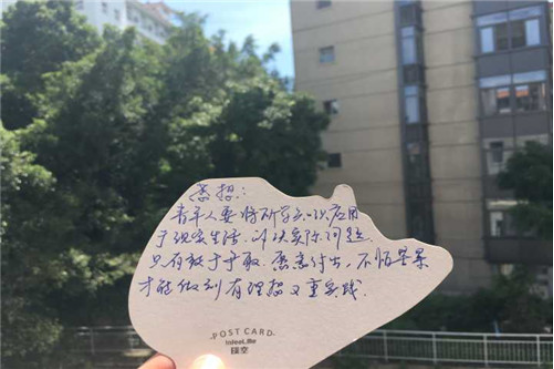 感想:
青年人要将所学知识应用
于现实生活,解决实际问题.
只有敢于争取、愿意付出、不怕苦累
才能做到有理想又重实践.
POST CARD.